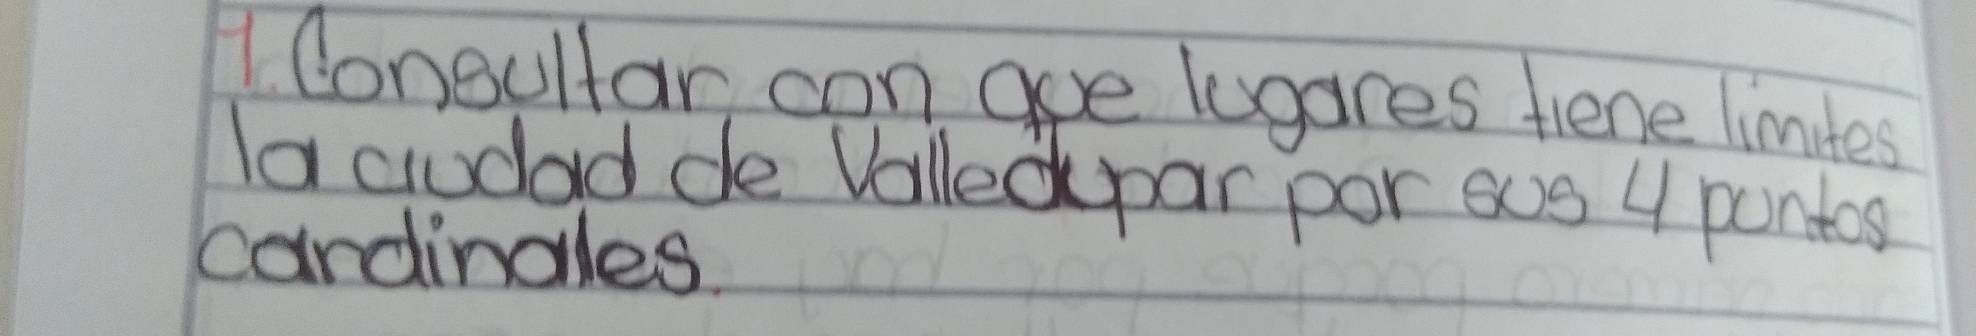 1. Consultar con que lugares tiene limites
la ciudad de Valledupar por sus 4 puntos
cardinales.